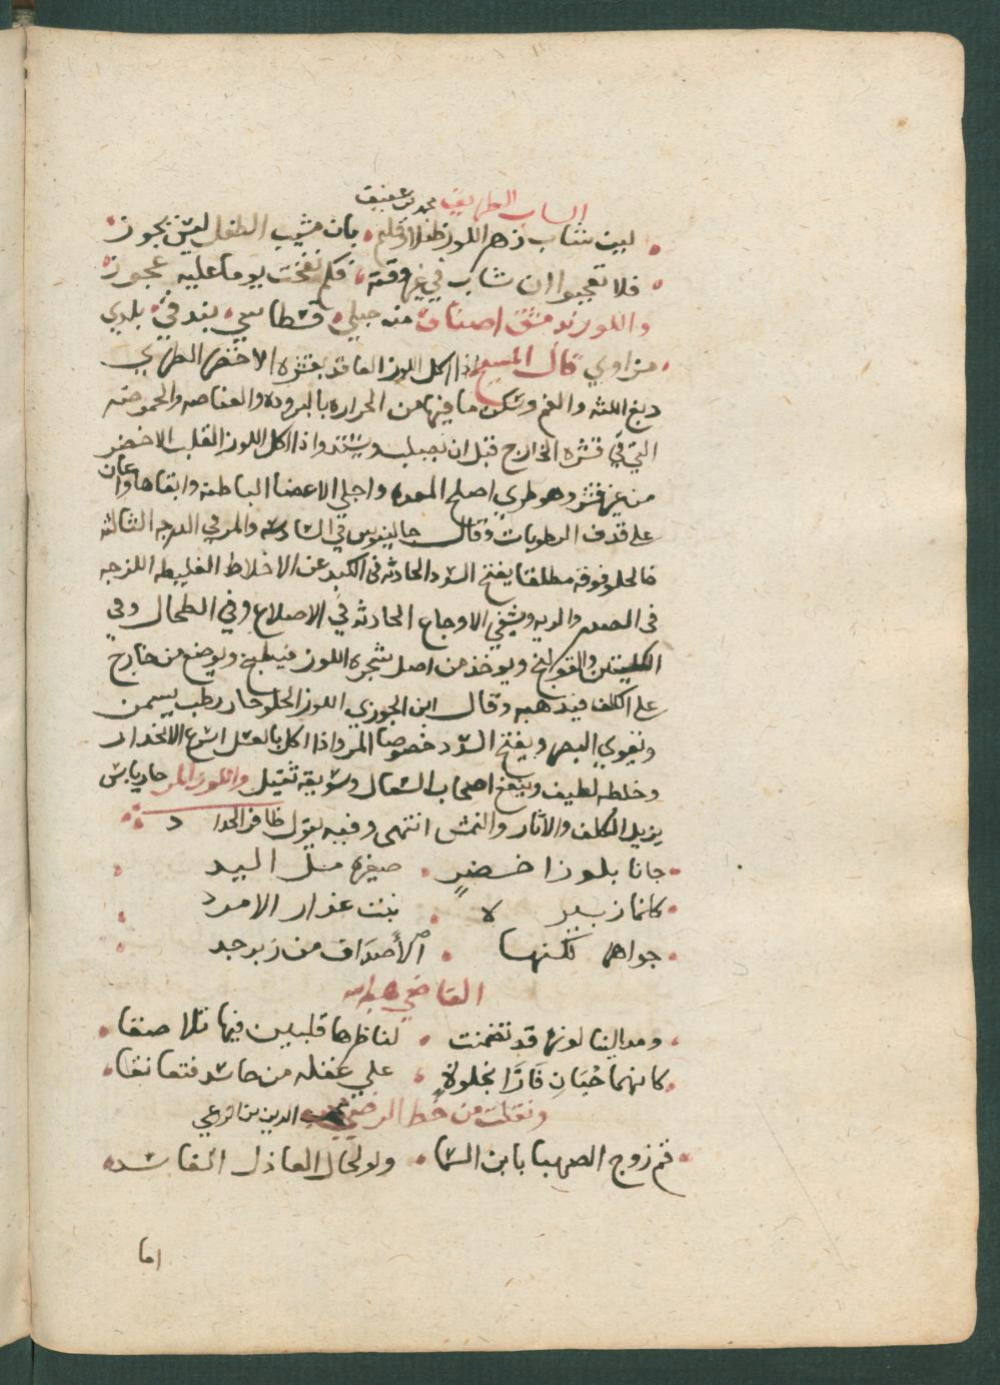 الشاب الظريف محمد بن عفيف
لين شاب زهر اللوز طفلا وقلم بان مشيب الطفل ليس يجوز
فلا تعجبوا ان شاب في غير وقته فكم نفخت يوما عليه عجوز
واللوز بدمشق اصناف منه جبلي قسطاسي بندقي بلدي
مزاوي قال المسيح اذا اكل اللوز العاقد بقشره الاخضر الطري
دبغ اللثه والفم وسكن ما فيها من الحراره بالبروده والعفاصه والحموضه
التي في قشره الخارج قبل ان يصلب ويشتد واذا اكل اللوز القلب الاخضر
من غير قشره وهو طري اصلح المعده واجلي الاعضا الباطنه وابقاها واعان
على قذف الرطوبات وقال جالينوس في السادسه والمر في الدرجه الثالثه
فالحلو فوقه مطلقا يفتح السدد الحادثه في الكبد عن الاخلاط الغليظه اللزجه
في الصدر والريه ويشفي الاوجاع الحادثه في الاضلاع وفي الطحال وفي
الكليتين والقولنج ويوخذ من اصل شجره اللوز فيطبخ ويوضع من خارج
على الكلف فيذهبه وقال ابن الجوزي اللوز الحلو حار رطب يسمن
ويقوي البصر ويفتح السدد خصوصا المر واذا اكل بالعسل اسرع الانحدار
وخلطه لطيف وينفع اصحاب السعال وسويقه ثقيل واللوز المر حار يابس
يزيل الكلف والاثار والنمش انتهى وفيه يقول ظافر الحداد
جانا بلوز اخضر صغيره مل اليد
كانما زبيره لا نبت عذار الامرد
جواهر لكنها الأصداف من زبرجد
القاضي
ومد الينا لوزة قد تضمنت لناظرها قلبين فيها تلاصقا
كانهما حبان فازا بخلوة على غفله من حاسد فتعانقا
ونقلت من خط الرضي الدين بن الزعي
قم زوج الصهبا بابن السما ولو لحال العاذل الفاسد
اما